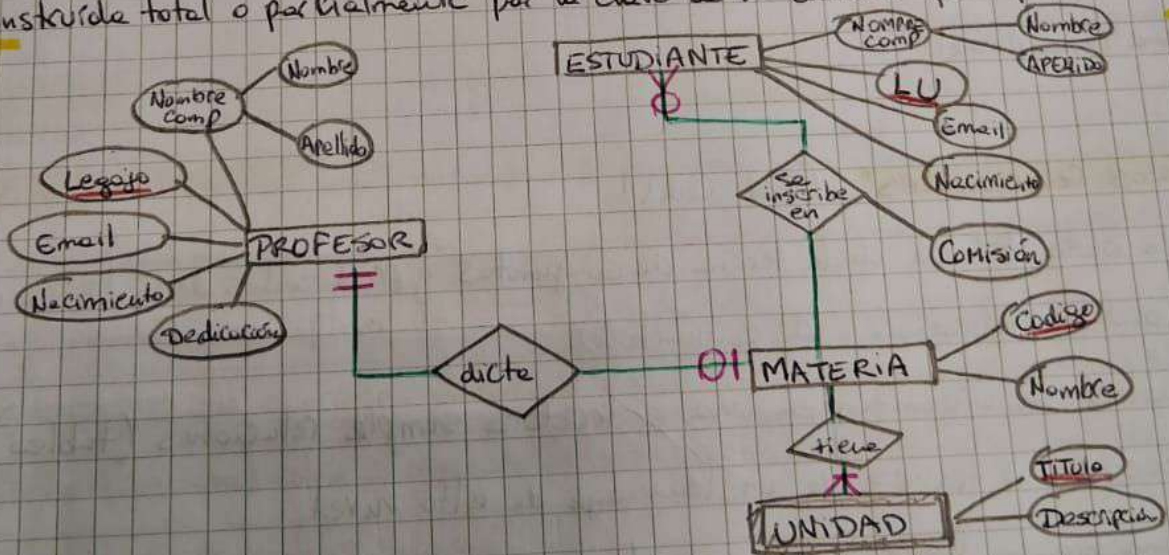 nstruída total o parcialmente por la clave de
Nombre
Nombre
comp
Apellido
Legajo
Email
Nacimiento
Dedicación
PROFESOR
dicta
ESTUDIANTE
NOMBRE
comp
Nombre
APELLIDO
LU
Email
Nacimiento
se
inscribe
en
Comisión
MATERIA
Codigo
Nombre
tiene
UNIDAD
TITULO
Descripción